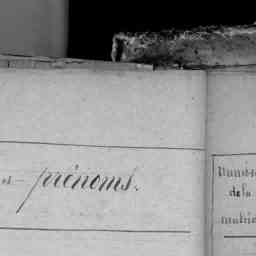 et prénoms.
Numéro
de la
matric